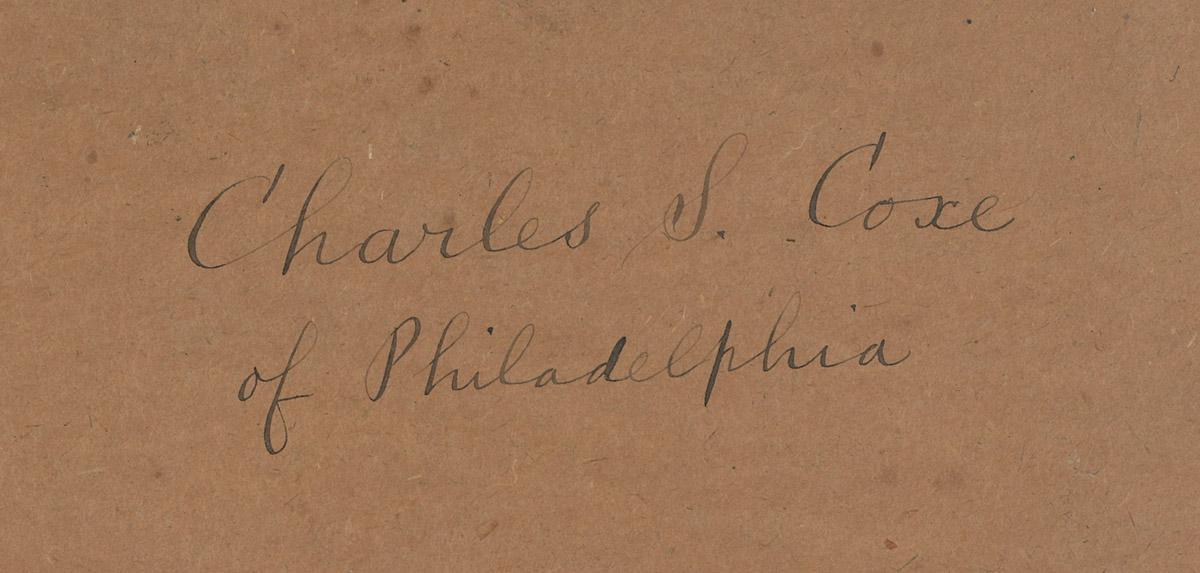 Charles S. Coxe
of Philadelphia